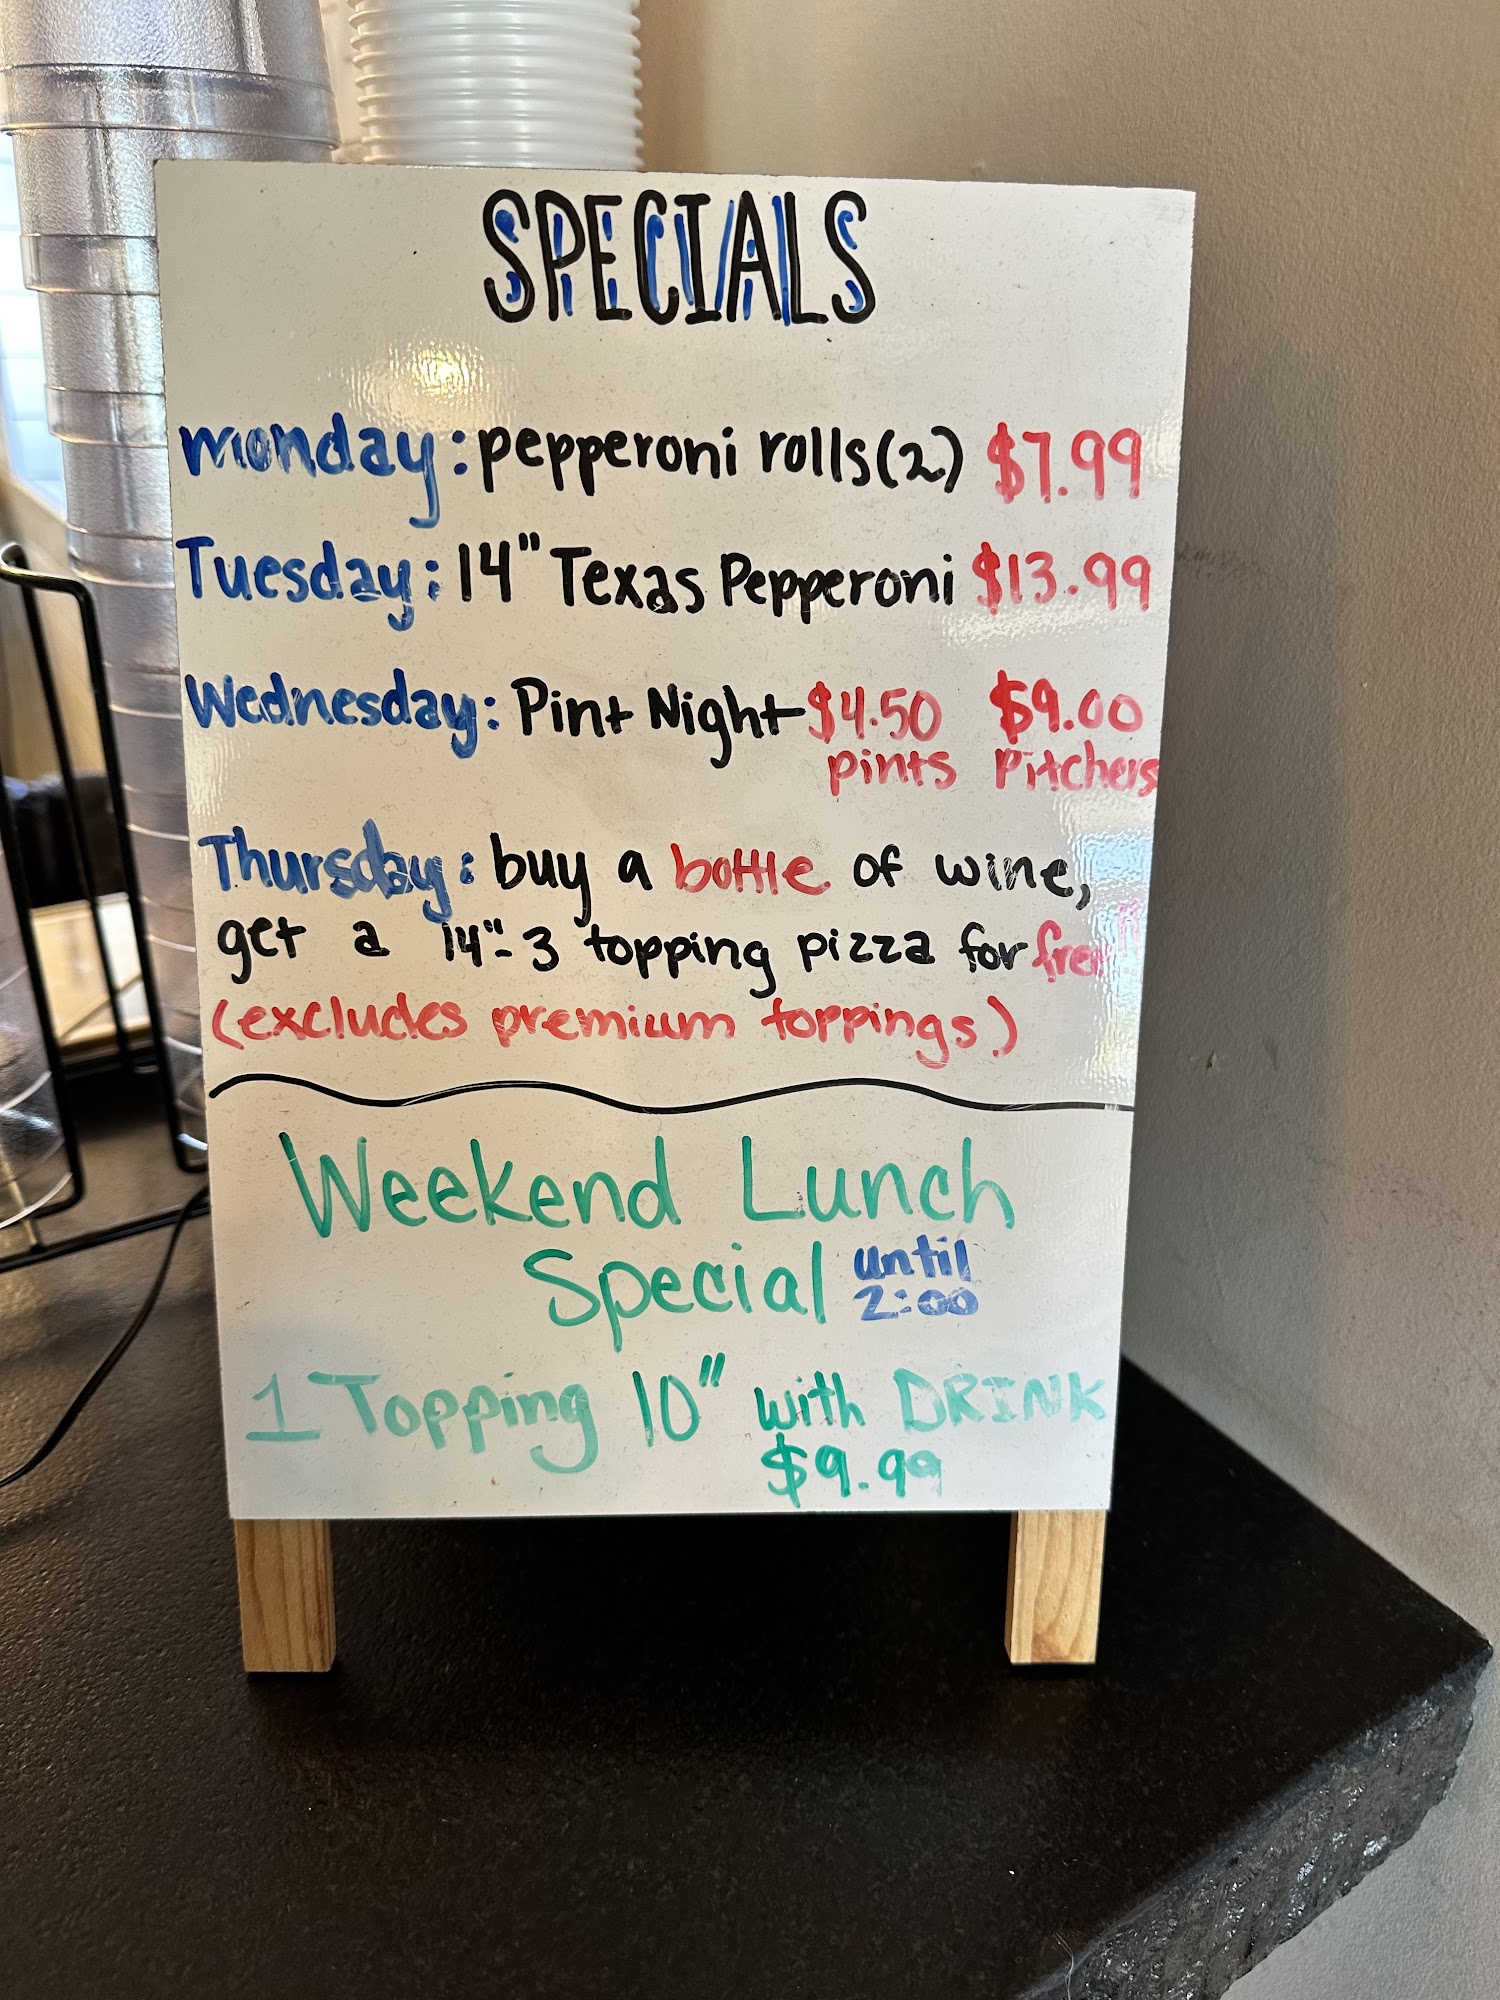 SPECIALS
monday: pepperoni rolls (2) $7.99
Tuesday: 14" Texas Pepperoni $13.99
Wednesday: Pint Night $4.50 $9.00
pints Pitchers
Thursday: buy a bottle of wine,
get a 14"-3 topping pizza for free!!
(excludes premium toppings)
Weekend Lunch
Special until
2:00
1 Topping 10" with DRINK
$9.99